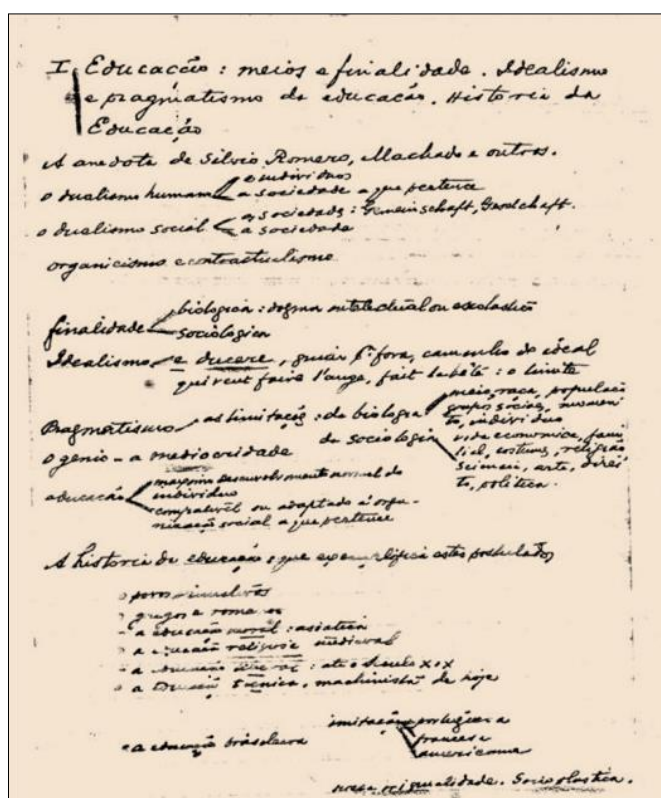 I. Educação: meios e finalidade. Idealismo
e pragmatismo da educação. Historia da
Educação
A anedota de Silvio Romero, Machado e outros.
o dualismo humano o individuo
a sociedade a que pertence
o dualismo social as sociedades: Gemeinschaft, Gesellschaft.
a sociedade
organicismo e contractualismo
finalidade biologica: dogma intelectual ou escolastico
sociologica
Idealismo e ducere, guiar p. fora, caminho do ideal
qui veut faire l'ange, fait la bête: o limite
Pragmatismo as limitações: da biologia meio, raça, população
grupos sociais,
individuo
da sociologia vida economica,
costumes, religião
arte, direi
to, politica.
o genio - a mediocridade
educação maximo desenvolvimento normal do
individuo
compativel ou adaptado á orga-
nização social a que pertence
A historia da educação: que exemplifica estes postulados
povos
gregos e romanos
a educação moral: asiatica
a educação religiosa medieval
a educação liberal: até o seculo XIX
a educação tecnica, machinista de hoje
a educação brasileira imitação portuguesa
francesa
americana
nossa originalidade. Socioplastica.